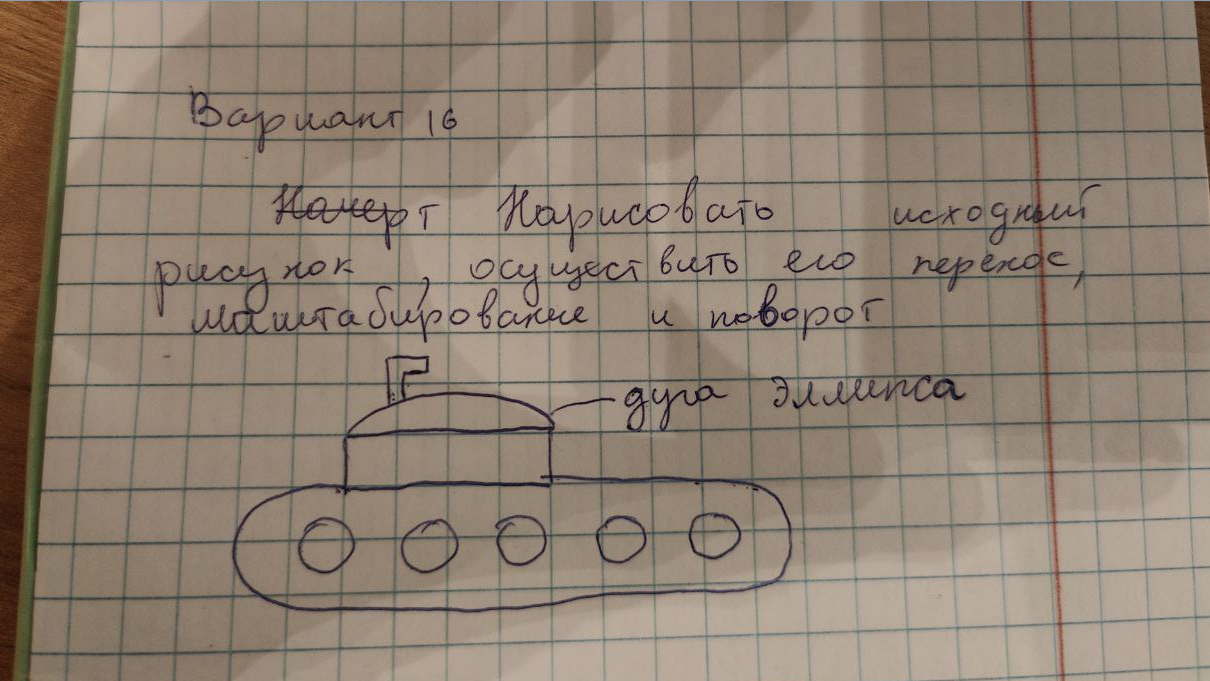 Вариант 16
Начерт Нарисовать исходный
рисунок , осуществить его перенос,
масштабирование и поворот
дуга эллипса